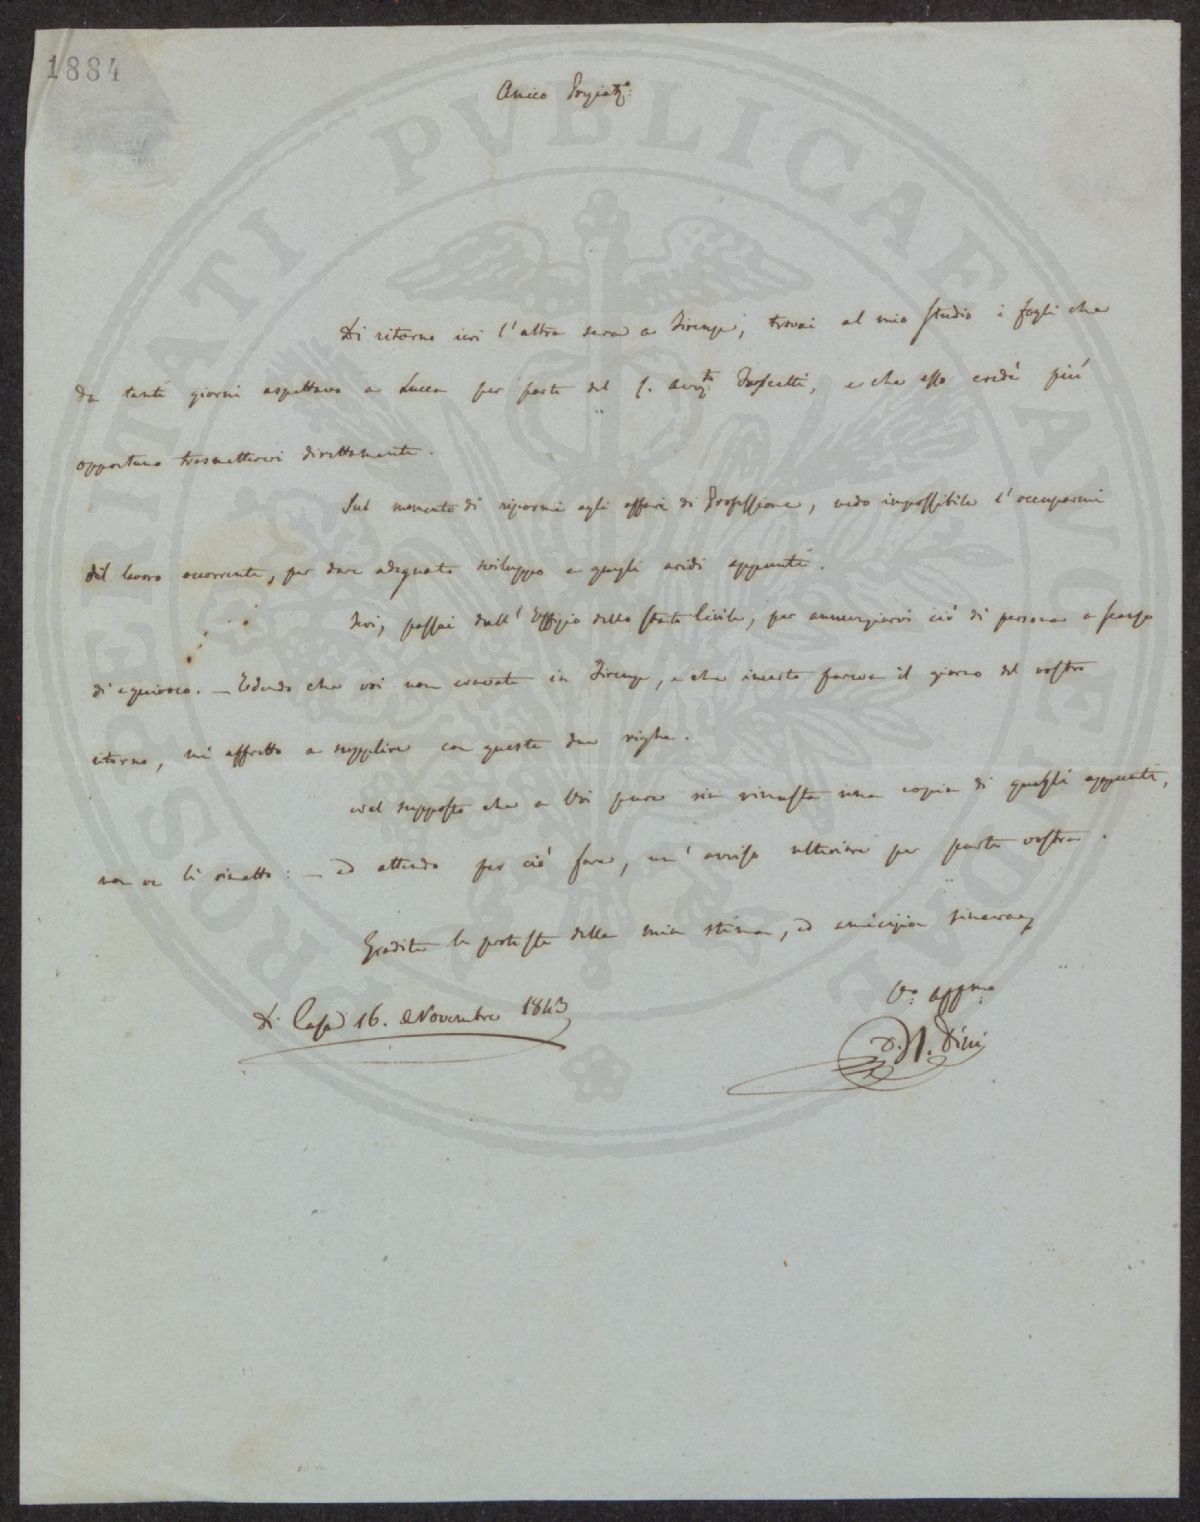 1884
Amico Pregiatº:
Di ritorno ieri l'altra sera a Firenze, trovai al mio studio i fogli che
da tanti giorni aspettavo a Lucca per parte del S. Avv., e che esso credè più
opportuno trasmettervi direttamente.
Sul momento di ripormi agli affari di Professione, vedo impossibile l'occuparmi
del lavoro occorrente, per dare adeguato sviluppo a quegli aridi appunti.
Ieri, passai dall' Uffizio dello Stato Civile, per annunziarvi ciò di persona a scanso
di equivoco. — Udendo che voi non eravate in Firenze, e che incerto pareva il giorno del vostro
ritorno, mi affretto a supplire con queste due righe.
Nel supposto che a Voi pure sia rimasta una copia di quegli appunti,
non ve li rimetto: — ed attendo per ciò fare, un' avviso ulteriore per parte vostra.
Gradite le proteste della mia stima, ed amicizia sincera
Di Casa 16. Novembre 1843
Vº: affmº:
D. N. Dini
PROSPERITATI PVBLICAE AVGENDAE